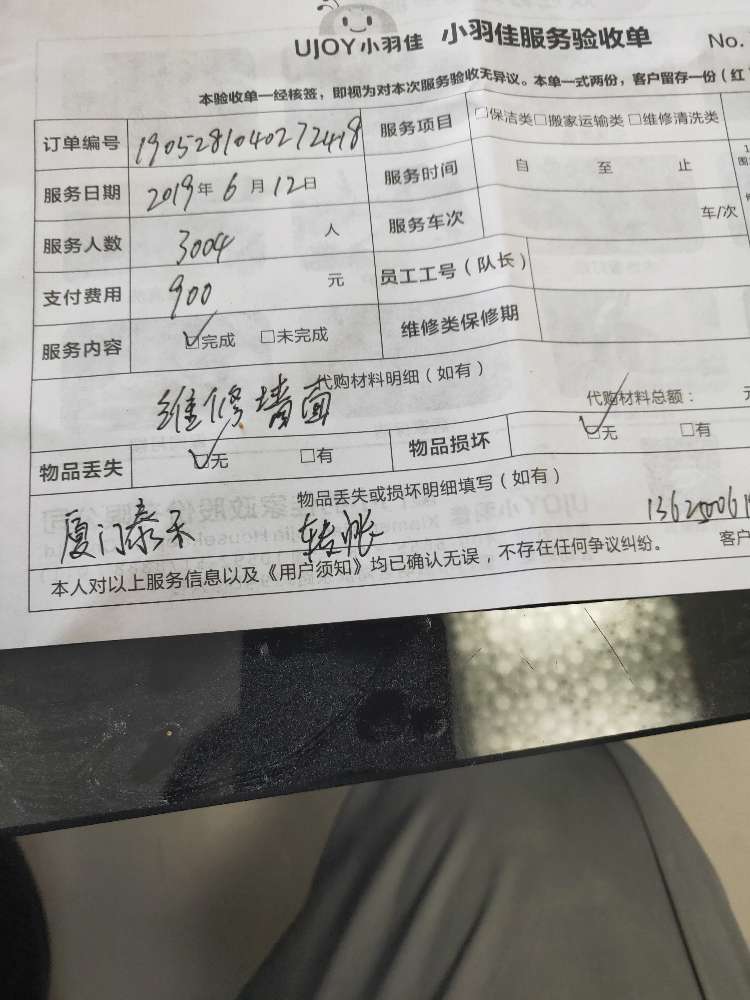 UJOY小羽佳 小羽佳服务验收单 No.
本验收单一经核签，即视为对本次服务验收无异议。本单一式两份，客户留存一份（红
订单编号 1905281040272418 服务项目 □保洁类□搬家运输类 □维修清洗类
服务日期 2019年6月12日 服务时间 自 至 止
服务人数 3004 人 服务车次 车/次
支付费用 900 元 员工工号（队长）
服务内容 ☑完成 □未完成 维修类保修期
代购材料明细（如有）
维修墙面 代购材料总额：
物品丢失 ☑无 □有 物品损坏 ☑无 □有
物品丢失或损坏明细填写（如有）
厦门泰禾 转账
本人对以上服务信息以及《用户须知》均已确认无误，不存在任何争议纠纷。 客户